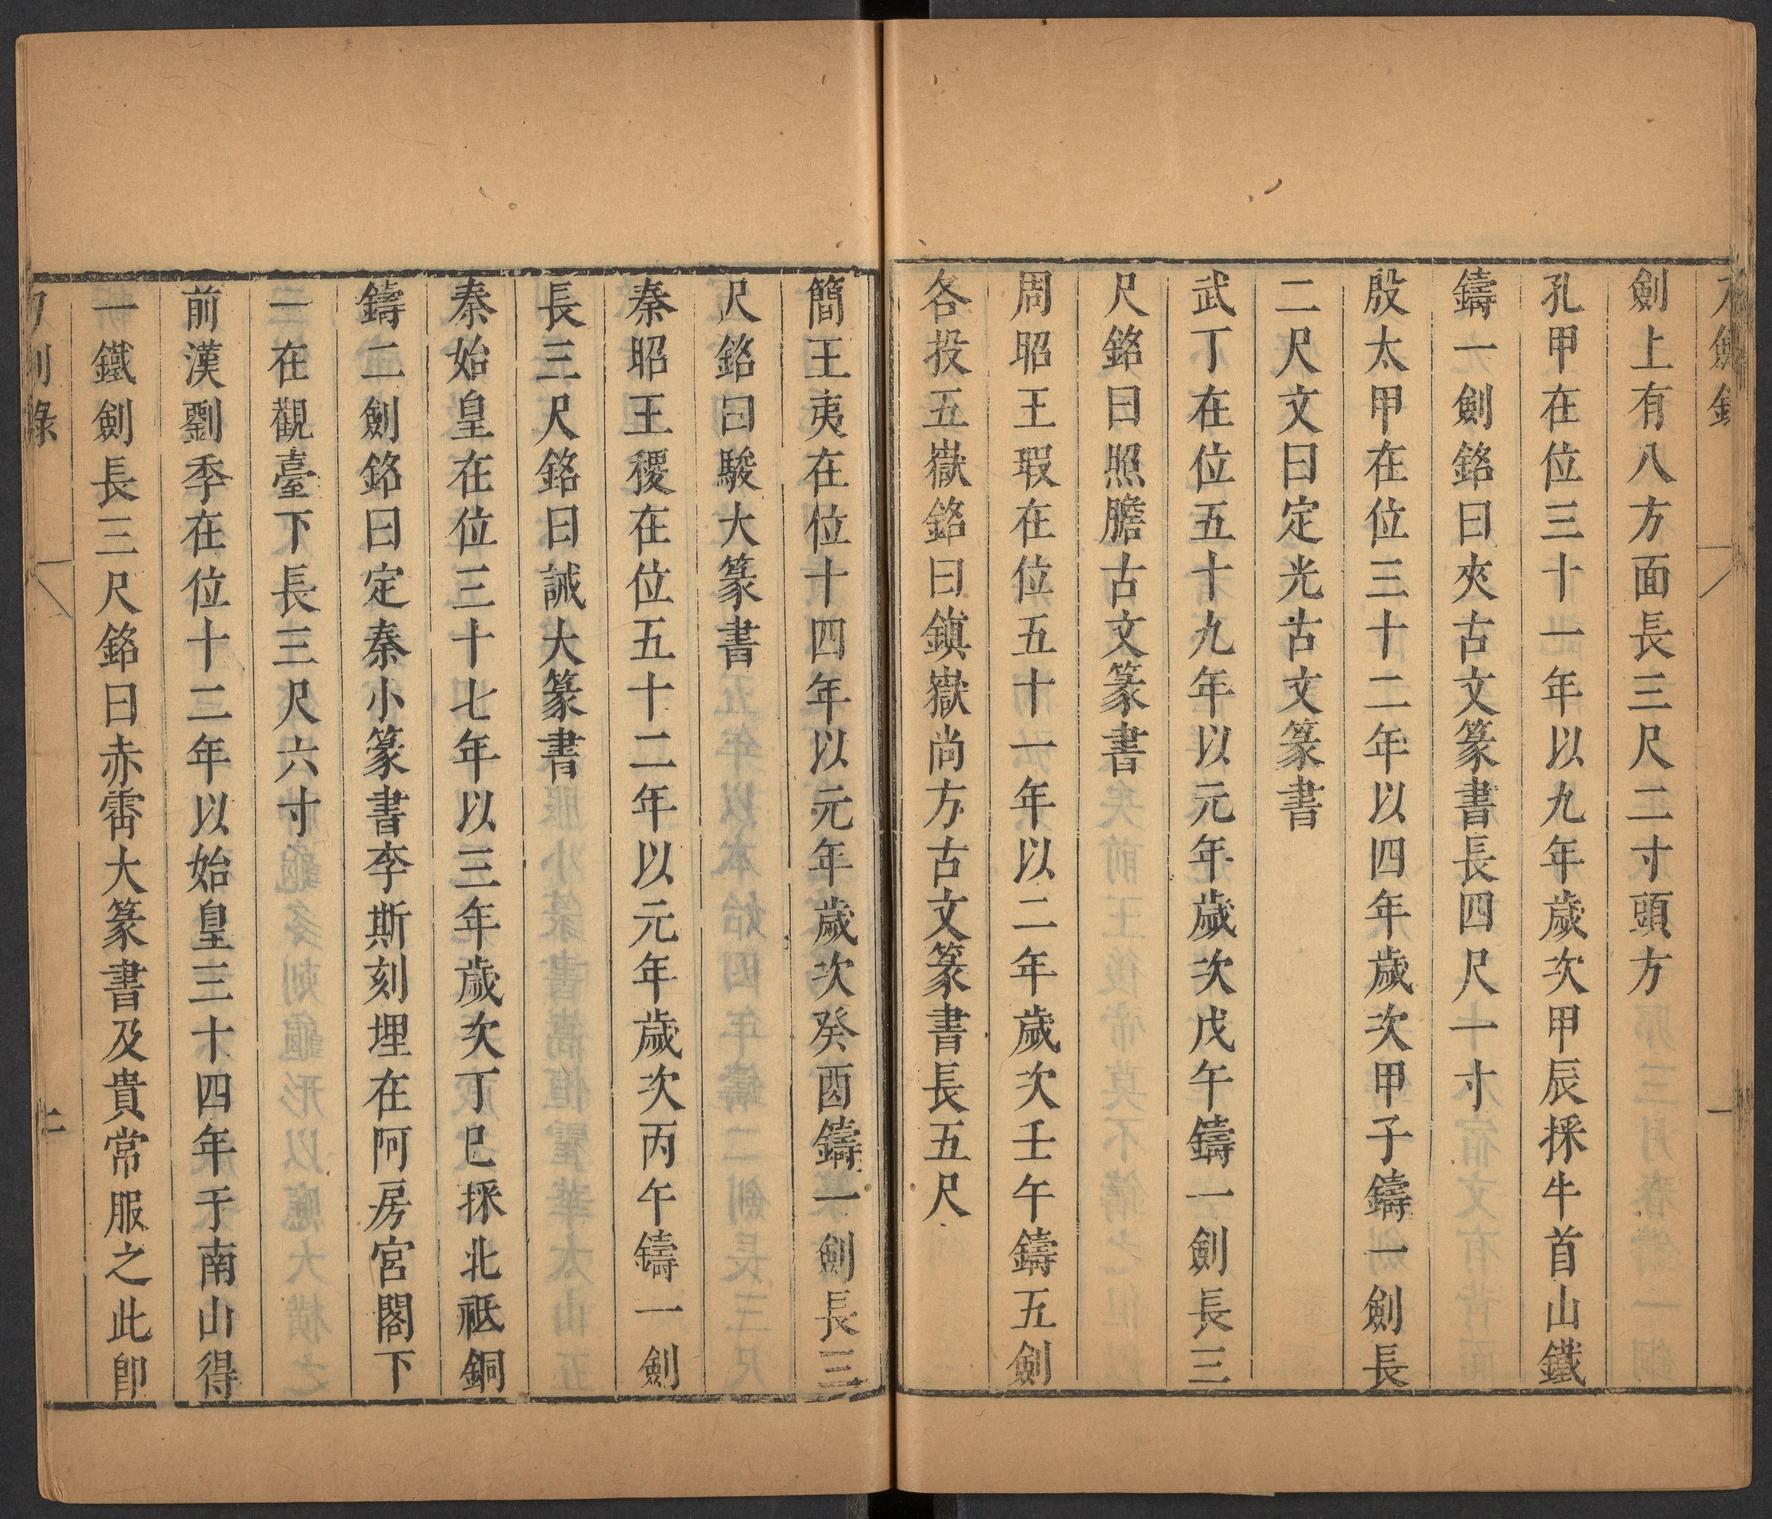 劍上有八方面長三尺二寸頭方
孔甲在位三十一年以九年歲次甲辰採牛首山鐵
鑄一劍銘曰夾古文篆書長四尺一寸
殷太甲在位三十二年以四年歲次甲子鑄一劍長
二尺文曰定光古文篆書
武丁在位五十九年以元年歲次戊午鑄一劍長三
尺銘曰照膽古文篆書
周昭王瑕在位五十一年以二年歲次壬午鑄五劍
各投五嶽銘曰鎮嶽尚方古文篆書長五尺
簡王夷在位十四年以元年歲次癸酉鑄一劍長三
尺銘曰駿大篆書
秦昭王稷在位五十二年以元年歲次丙午鑄一劍
長三尺銘曰誡大篆書
秦始皇在位三十七年以三年歲次丁巳採北祗銅
鑄二劍銘曰定秦小篆書李斯刻埋在阿房宮閣下
一在觀臺下長三尺六寸
前漢劉季在位十二年以始皇三十四年于南山得
一鐵劍長三尺銘曰赤霄大篆書及貴常服之此卽